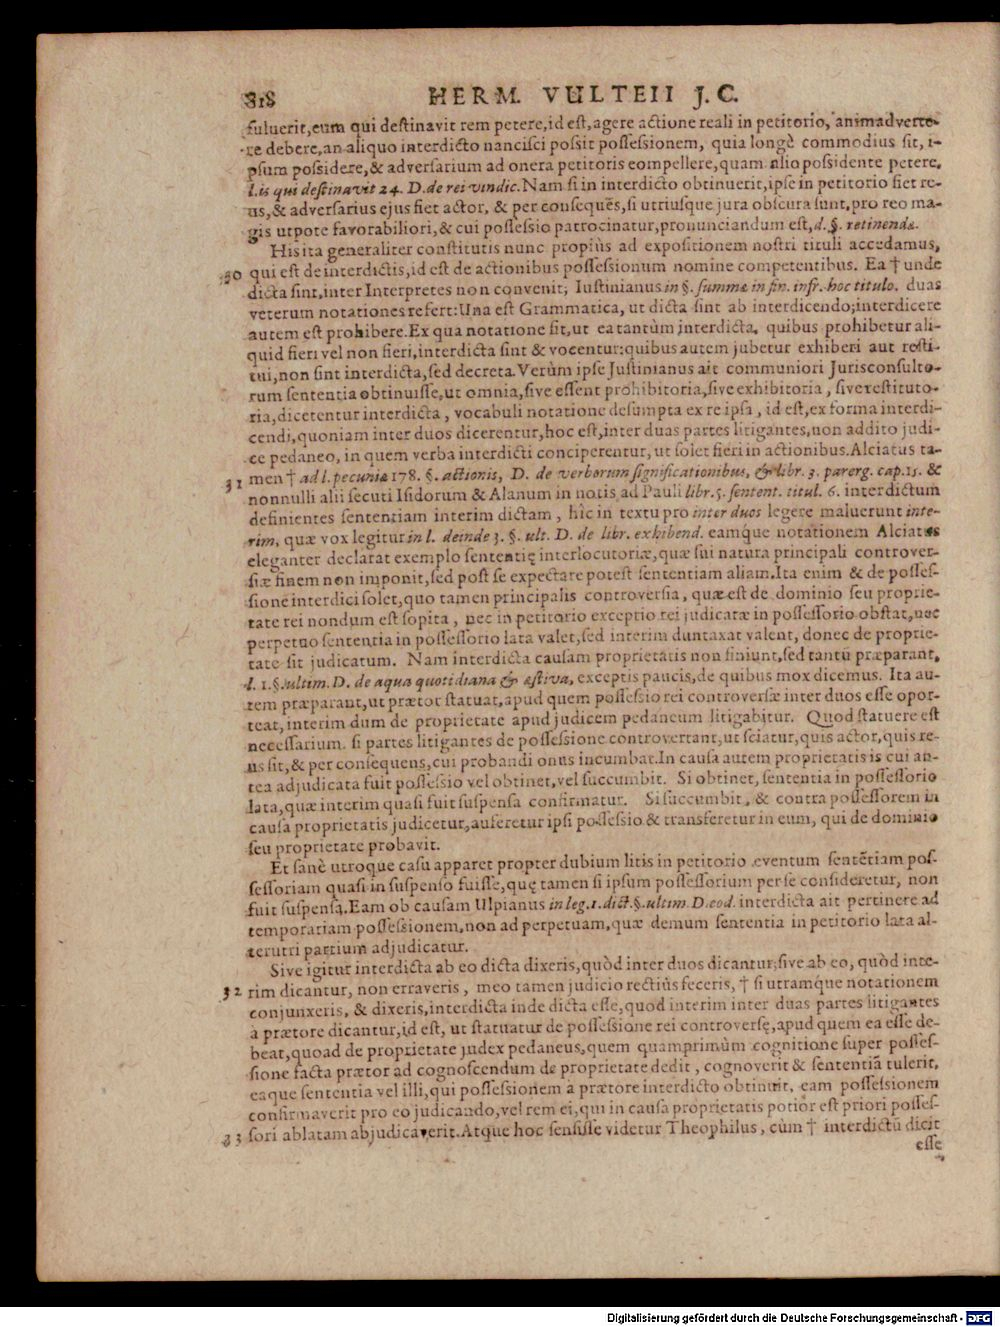 818 HERM. VULTEII J. C.
ſuluerit,eum qui deſtinavit rem petere,id eſt,agere actione reali in petitorio, animadverte-
re debere,an aliquo interdicto nanciſci poſsit poſſeſsionem, quia longè commodius ſit, i-
pſum poſsidere,& adverſarium ad onera petitoris eompellere,quam alio poſsidente petere,
l. is qui deſtinavit 24. D. de rei vindic. Nam ſi in interdicto obtinuerit,ipſe in petitorio fiet re-
us,& adverſarius ejus fiet actor, & per conſequẽs,ſi utriuſque jura obſcura ſunt,pro reo ma-
gis utpote favorabiliori,& cui poſſeſsio patrocinatur,pronunciandum eſt,d. §. retinendæ.
His ita generaliter conſtitutis nunc propiùs ad expoſitionem noſtri tituli accedamus,
30 qui eſt de interdictis,id eſt de actionibus poſſeſsionum nomine competentibus. Ea † unde
dicta ſint,inter Interpretes non convenit; Iuſtinianus in §. ſumma in fin. infr. hoc titulo. duas
veterum notationes refert:Una eſt Grammatica, ut dicta ſint ab interdicendo;interdicere
autem eſt prohibere.Ex qua notatione fit,ut ea tantùm interdicta, quibus prohibetur ali-
quid fieri vel non fieri,interdicta ſint & vocentur:quibus autem jubetur exhiberi aut reſti-
tui,non ſint interdicta,ſed decreta.Verùm ipſe Juſtinianus ait communiori Jurisconſulto-
rum ſententia obtinuiſſe,ut omnia,ſive eſſent prohibitoria,ſive exhibitoria, ſive reſtituto-
ria,dicerentur interdicta, vocabuli notatione deſumpta ex re ipſa, id eſt,ex forma interdi-
cendi,quoniam inter duos dicerentur,hoc eſt,inter duas partes litigantes,non addito judi-
ce pedaneo, in quem verba interdicti conciperentur, ut ſolet fieri in actionibus.Alciatus ta-
31 men † ad l. pecuniæ 178. §. actionis, D. de verborum ſignificationibus, & libr. 3. parerg. cap. 15. &
nonnulli alii ſecuti Iſidorum & Alanum in notis ad Pauli libr. 5. ſentent. titul. 6. interdictum
definientes ſententiam interim dictam, hîc in textu pro inter duos legere maluerunt inte-
rim, quæ vox legitur in l. deinde 3. §. ult. D. de libr. exhibend. eamq́ue notationem Alciatus
eleganter declarat exemplo ſententię interlocutoriæ,quæ ſui natura principali controver-
ſiæ finem non imponit,ſed poſt ſe expectare poteſt ſententiam aliam.Ita enim & de poſſeſ-
ſione interdici ſolet,quo tamen principalis controverſia, quæ eſt de dominio ſeu proprie-
tate rei nondum eſt ſopita, nec in petitorio exceptio rei judicatæ in poſſeſſorio obſtat,nec
perpetuo ſententia in poſſeſſorio lata valet,ſed interim duntaxat valent, donec de proprie-
tate ſit judicatum. Nam interdicta cauſam proprietatis non finiunt,ſed tantũ præparant,
l. 1. §. ultim. D. de aqua quotidiana & æſtiva, exceptis paucis,de quibus mox dicemus. Ita au-
tem præparant,ut prætor ſtatuat,apud quem poſſeſsio rei controverſæ inter duos eſſe opor-
teat,interim dum de proprietate apud judicem pedaneum litigabitur. Quod ſtatuere eſt
neceſſarium. ſi partes litigantes de poſſeſsione controvertant,ut ſciatur,quis actor,quis re-
us ſit,& per conſequens,cui probandi onus incumbat.In cauſa autem proprietatis is cui an-
tea adjudicata fuit poſſeſsio vel obtinet,vel ſuccumbit. Si obtinet, ſententia in poſſeſſorio
lata,quæ interim quaſi fuit ſuſpenſa confirmatur. Si ſuccumbit, & contra poſſeſſorem in
cauſa proprietatis judicetur,auferetur ipſi poſſeſsio & transferetur in eum, qui de dominio
ſeu proprietate probavit.
Et ſanè utroque caſu apparet propter dubium litis in petitorio eventum ſentẽtiam poſ-
ſeſſoriam quaſi in ſuſpenſo fuiſſe,quę tamen ſi ipſum poſſeſſorium per ſe conſideretur, non
fuit ſuſpenſa.Eam ob cauſam Ulpianus in leg. 1. dict. §. ultim. D. eod. interdicta ait pertinere ad
temporariam poſſeſsionem,non ad perpetuam,quæ demum ſententia in petitorio lata al-
terutri partium adjudicatur.
Sive igitur interdicta ab eo dicta dixeris,quòd inter duos dicantur;ſive ab eo, quòd inte-
32 rim dicantur, non erraveris, meo tamen judicio rectiùs feceris, † ſi utramq́ue notationem
conjunxeris, & dixeris,interdicta inde dicta eſſe,quod interim inter duas partes litigantes
à prætore dicantur,id eſt, ut ſtatuatur de poſſeſsione rei controverſę,apud quem ea eſſe de-
beat,quoad de proprietate judex pedaneus,quem quamprimùm cognitione ſuper poſſeſ-
ſione facta prætor ad cognoſcendum de proprietate dedit, cognoverit & ſententiã tulerit,
eaque ſententia vel illi,qui poſſeſsionem à prætore interdicto obtinuit, eam poſſeſsionem
confirmaverit pro eo judicando,vel rem ei,qui in cauſa proprietatis potior eſt priori poſſeſ-
33 ſori ablatam abjudicaverit.Atque hoc ſenſiſſe videtur Theophilus, cùm † interdictũ dicit
eſſe
Digitalisierung gefördert durch die Deutsche Forschungsgemeinschaft - DFG